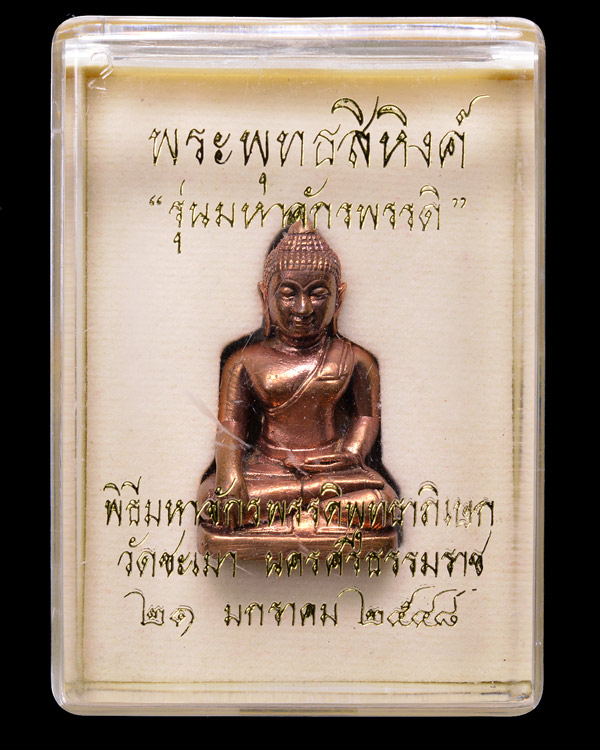 พระพุทธสิหิงค์
“รุ่นมหาจักรพรรดิ”
พิธีมหาจักรพรรดิพุทธาภิเษก
วัดชะเมา นครศรีธรรมราช
๒๑ มกราคม ๒๕๔๘